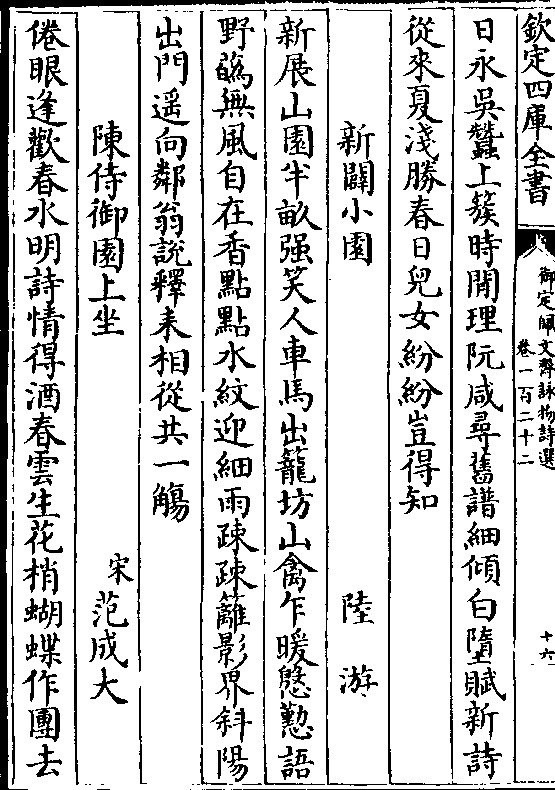 欽定四庫全書
御定佩文齋詠物詩選
卷一百二十二
十六
日永吳蠶上簇時閒理阮咸尋舊譜細傾白墮賦新詩
從來夏淺勝春日兒女紛紛豈得知
新闢小園 陸游
新展山園半畝强笑人車馬出籠坊山禽乍暖慇懃語
野鷁無風自在香點點水紋迎細雨疎疎籬影界斜陽
出門遥向鄰翁説釋耒相從共一觴
陳侍御園上坐 宋范成大
倦眼逢歡春水明詩情得酒春雲生花梢蝴蝶作團去